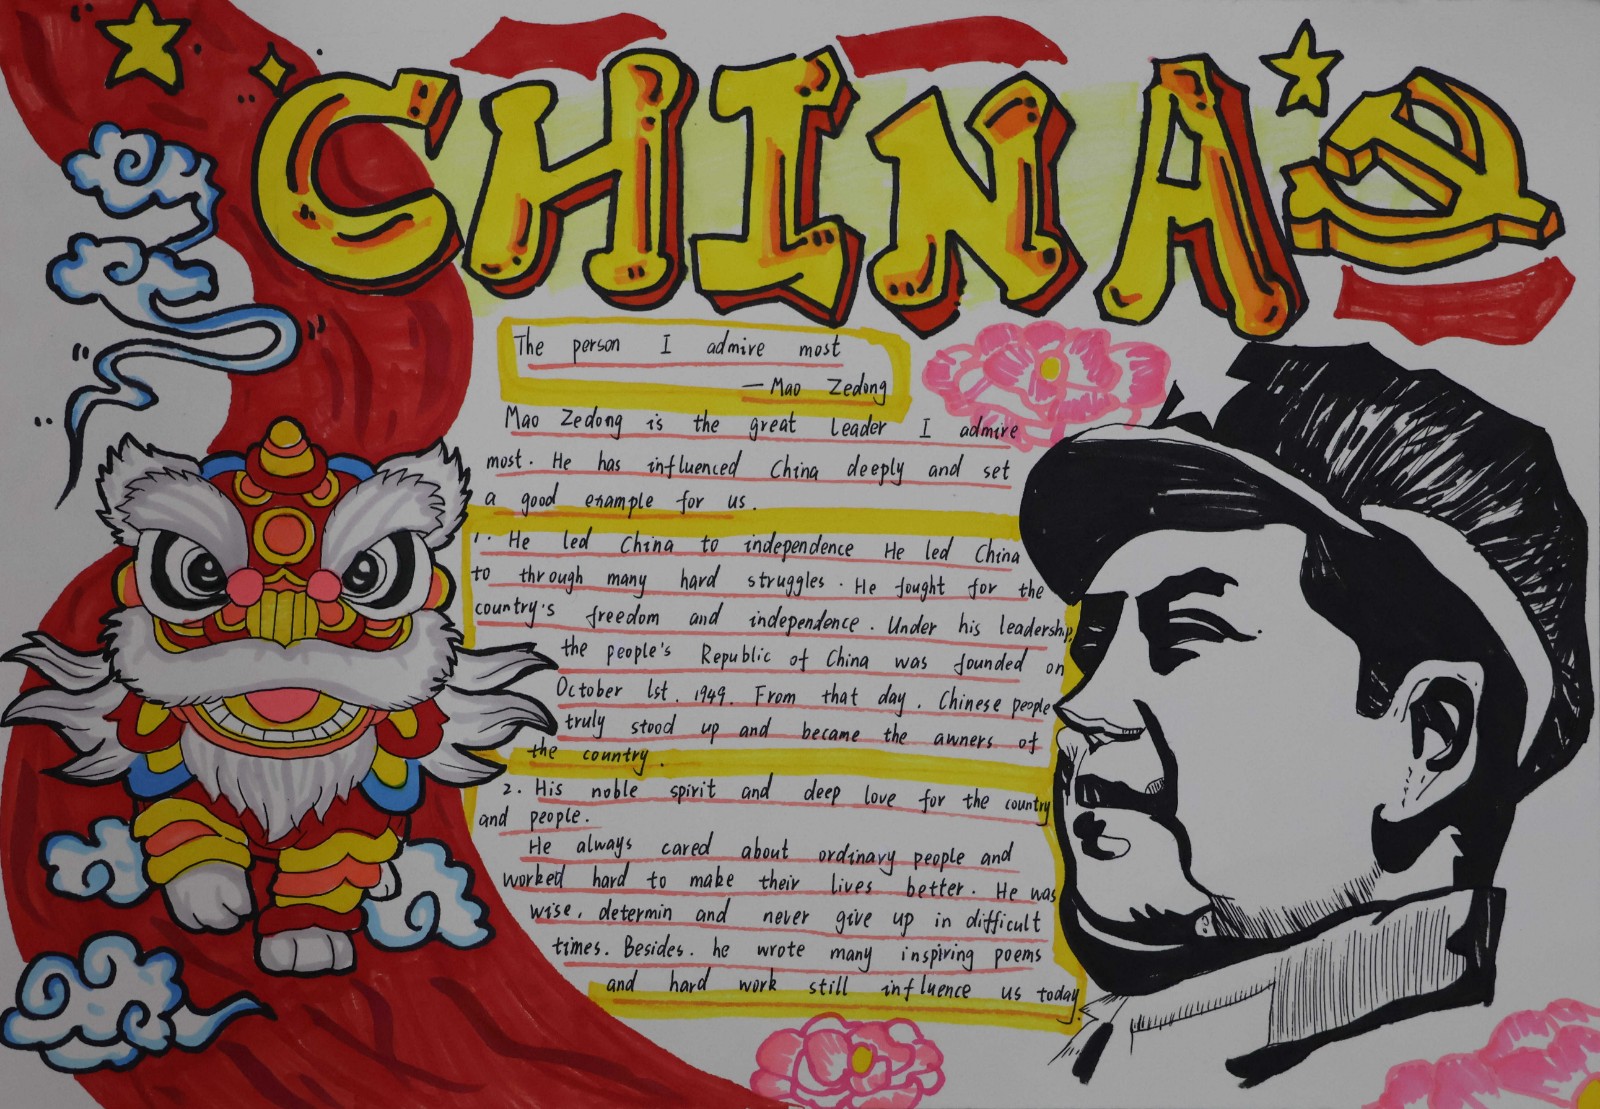 CHINA
The person I admire most
— Mao Zedong
Mao Zedong is the great leader I admire
most. He has influenced China deeply and set
a good example for us.
1. He led China to independence He led China
to through many hard struggles. He fought for the
country's freedom and independence. Under his leadership,
the people's Republic of China was founded on
October 1st. 1949. From that day. Chinese people
truly stood up and became the awners of
the country.
2. His noble spirit and deep love for the country
and people.
He always cared about ordinary people and
worked hard to make their lives better. He was
wise, determin and never give up in difficult
times. Besides. he wrote many inspiring poems
and hard work still influence us today.